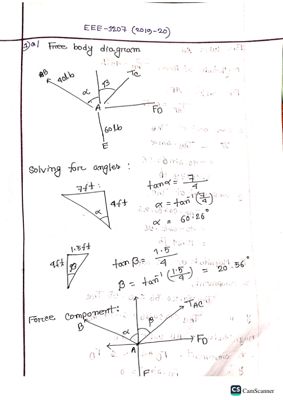 EEE-1207 (2019-20)
1) a) Free body diagram
AB 40lb α β TC
A FD
60lb
E
Solving for angles :
7ft: tanα = 7/4
4ft α = tan⁻¹(7/4)
α α = 60.26°
1.5ft
4ft β tanβ = 1.5/4
β = tan⁻¹(1.5/4) = 20.56°
Force Component:
B α β TAC
A FD
F
CS CamScanner